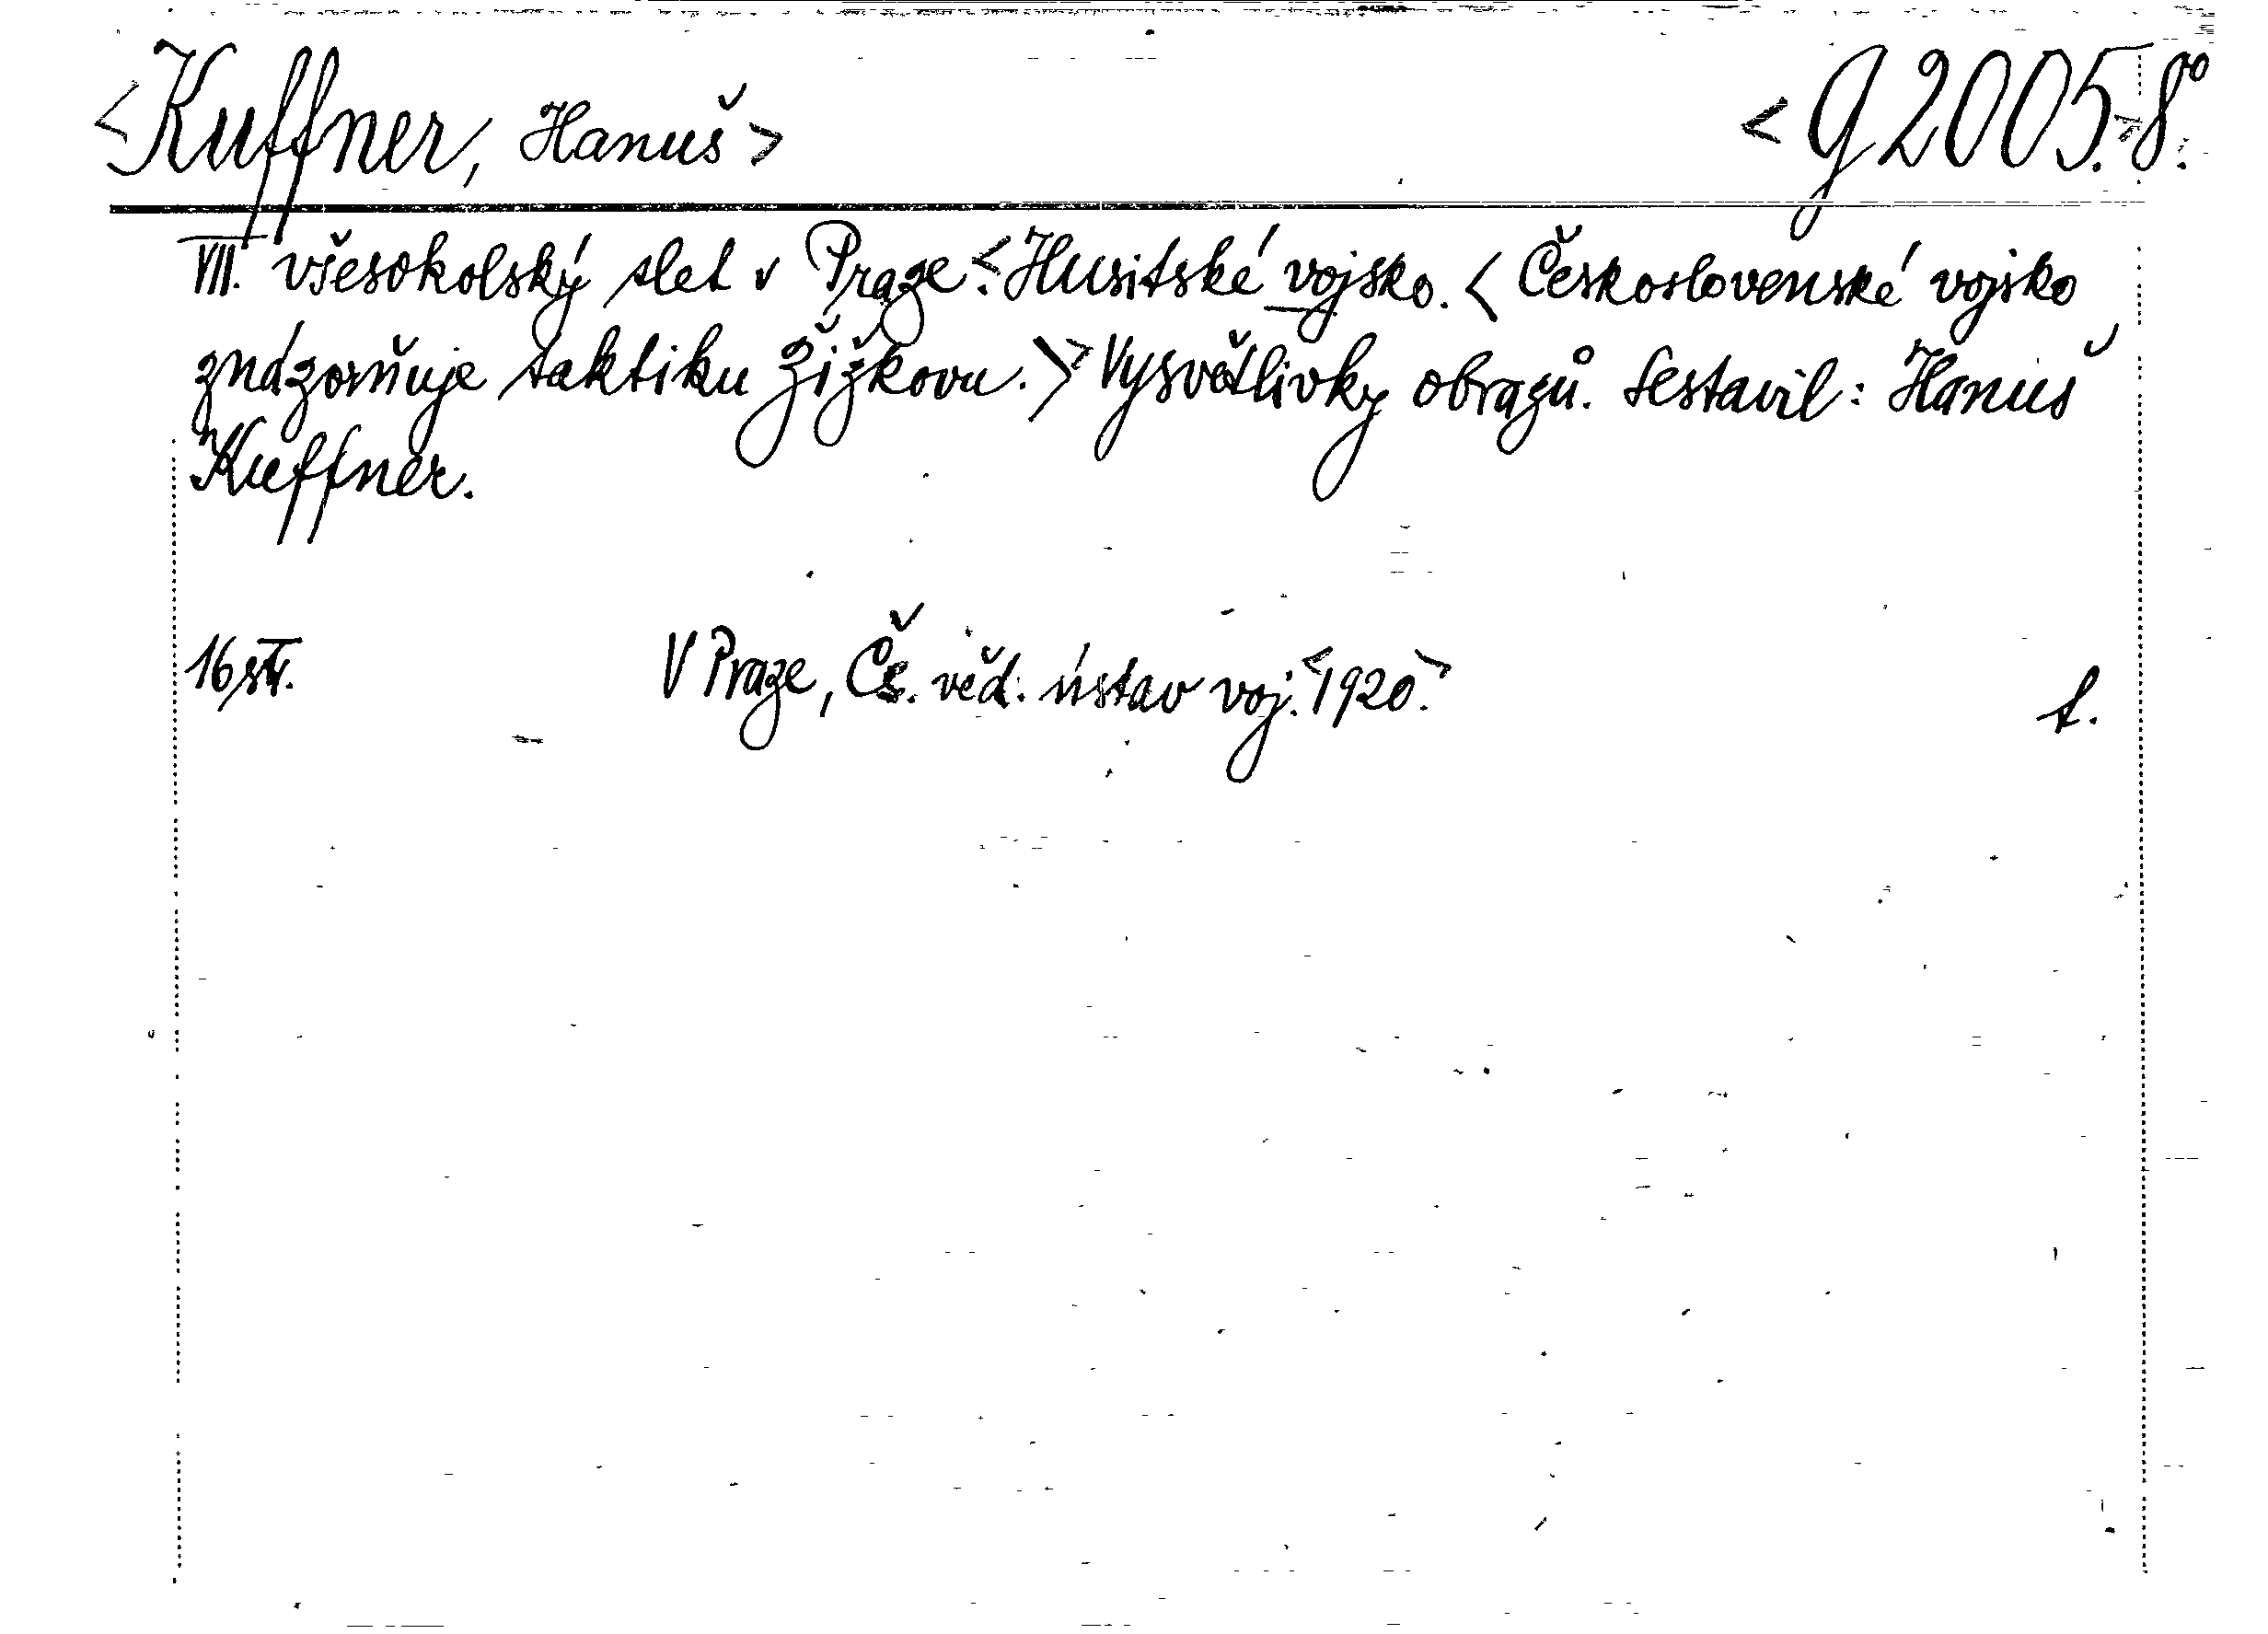 <Kuffner, Hanuš> <g 2005.-8°.
VII. všesokolský slet v Praze.<Husitské vojsko. < Československé vojsko
znázorňuje taktiku Žižkovu.>> Vysvětlivky obrazů. Sestavil: Hanuš
Kuffner.
16 str. V Praze, Čs. věd. ústav voj.<1920.>